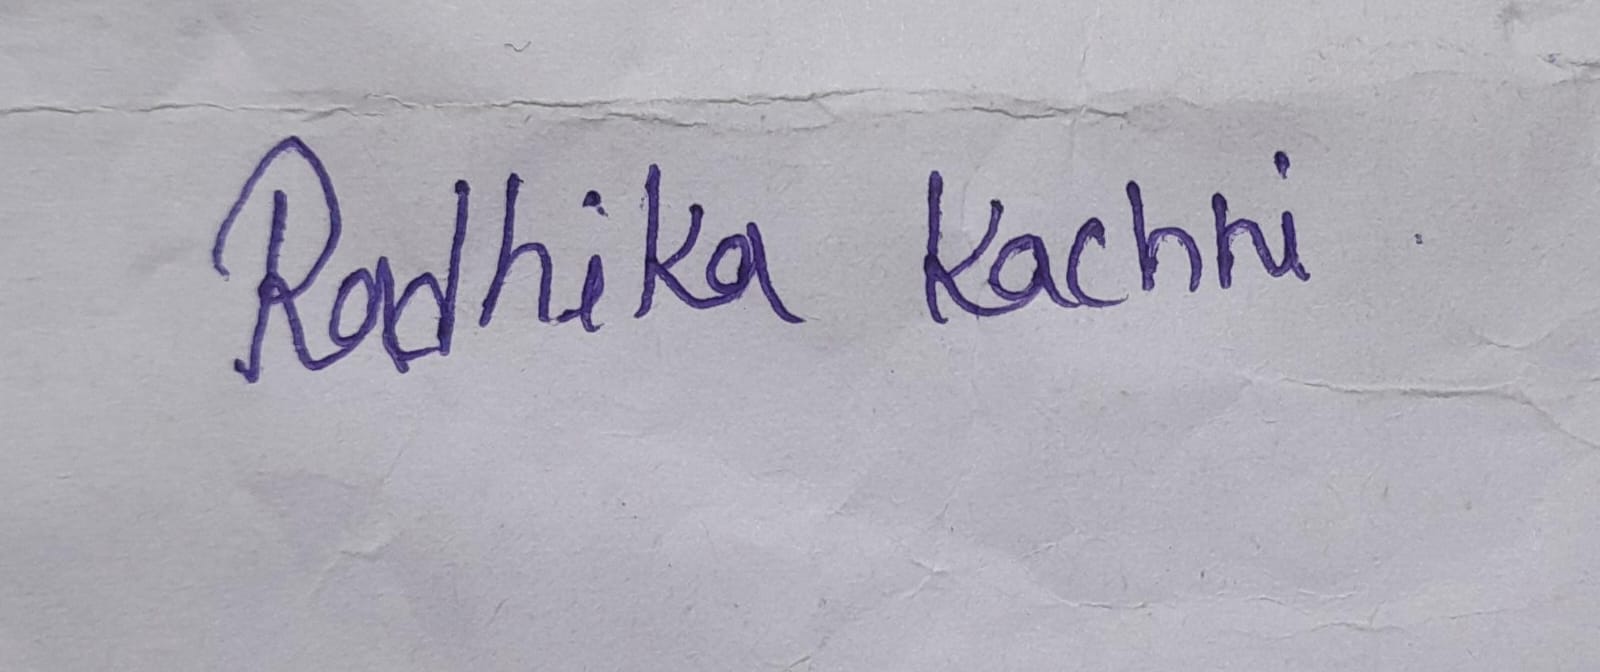 Radhika Kachhi